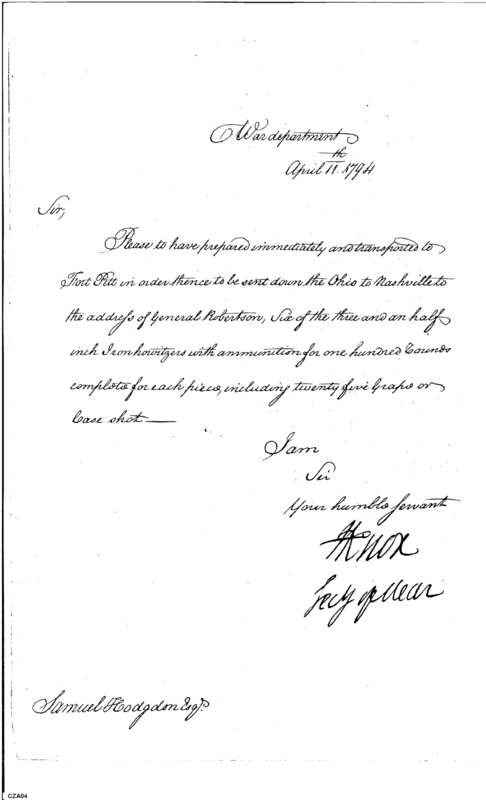 War department
April 11th. 1794
Sir,
Please to have prepared immediately and transported to
Fort Pitt in order thence to be sent down the Ohio to Nashville to
the address of General Robertson, Six of the three and an half
inch Iron howitzers with ammunition for one hundred rounds
complete for each piece, including twenty five Grape or
Case shot —
I am
Sir
Your humble servant
HKnox
Secy of War
Samuel Hodgdon Esqr.
CZA04